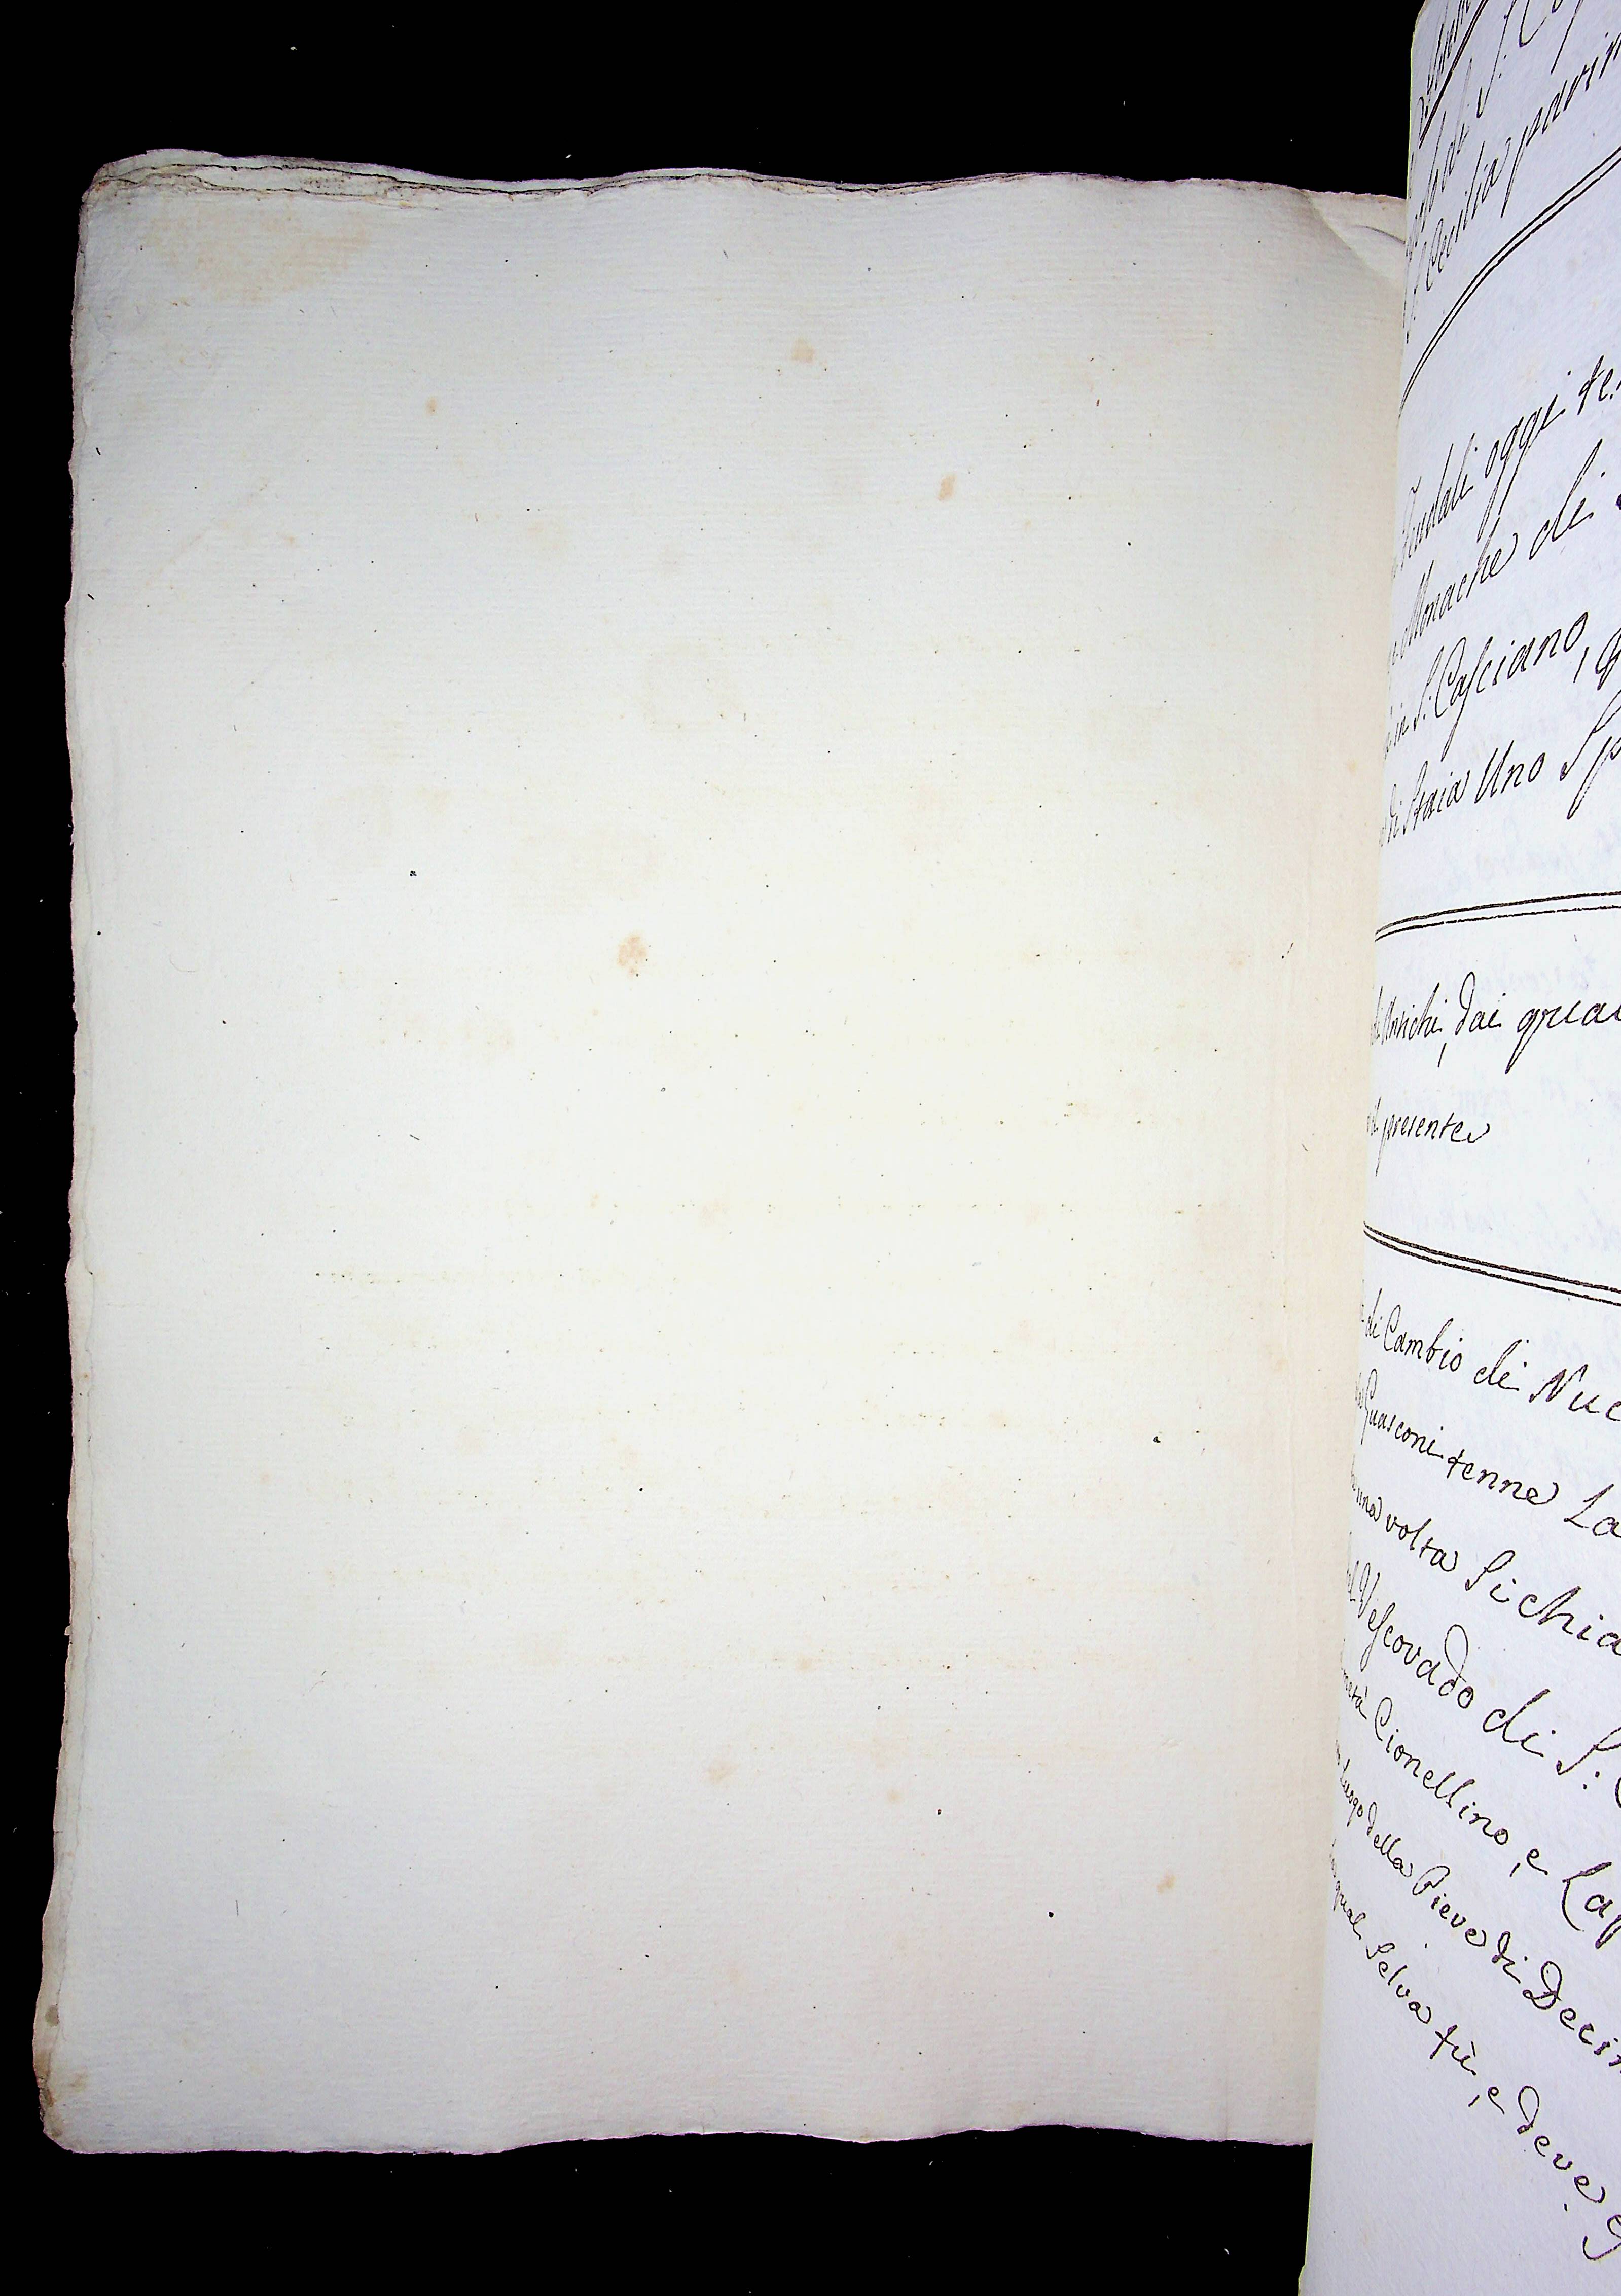 S. Cecilia pavim
oggi te
Monache di
in S. Casciano, q
di Staia Uno Sp
Antichi, dai qua
presente
di Cambio di Nuc
Guasconi tenne La
una volta Si chia
Vescovado di S:
metà Cionellino, e Lap
Luogo della Pieve di Decim
qual Selva fù, e deve